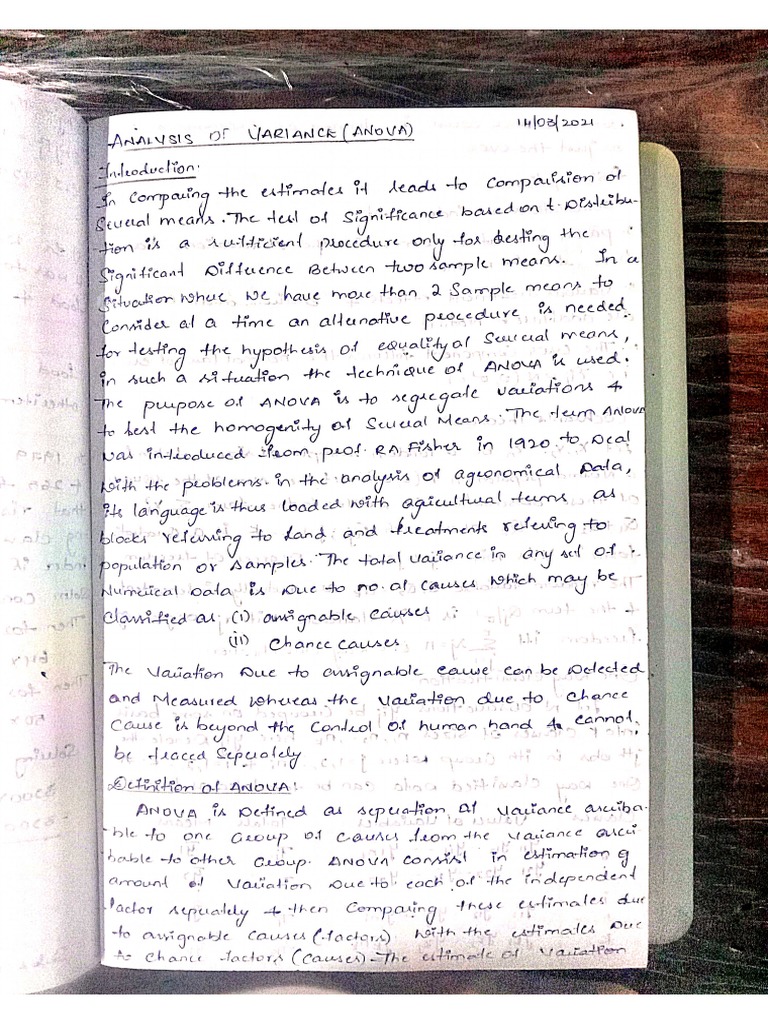 ANALYSIS OF VARIANCE (ANOVA) 14/03/2021
Introduction.
In comparing the estimates it leads to comparision of
several means. The test of significance based on t-Distribu-
tion is a sufficient procedure only for testing the
significant Difference Between two sample means. In a
situation where we have more than 2 sample means to
consider at a time an alternative procedure is needed
for testing the hypothesis of equality of several means,
in such a situation the technique of ANOVA is used.
The purpose of ANOVA is to segregate variations &
to test the homogenity of several Means. The term ANOVA
was introduced from prof. RA Fisher in 1920 to Deal
with the problems in the analysis of agronomical Data,
its language is thus loaded with agricultural terms as
blocks referring to land and treatments referring to
population or samples. The total variance in any set of
Numerical Data is Due to no. of causes which may be
classified as (i) assignable causes
(ii) Chance causes.
The Variation Due to assignable cause can be Detected
and Measured whereas the variation due to chance
cause is beyond the control of human hand & cannot
be traced seperately
Definition of ANOVA:
ANOVA is Defined as seperation of variance ascriba-
ble to one Group of causes from the variance ascri
bable to other Group. ANOVA consist in estimation of
amount of variation Due to each of the independent
factor seperately & then comparing these estimates due
to assignable causes (factors) with the estimates Due
to chance factors (causes). The estimate of variation